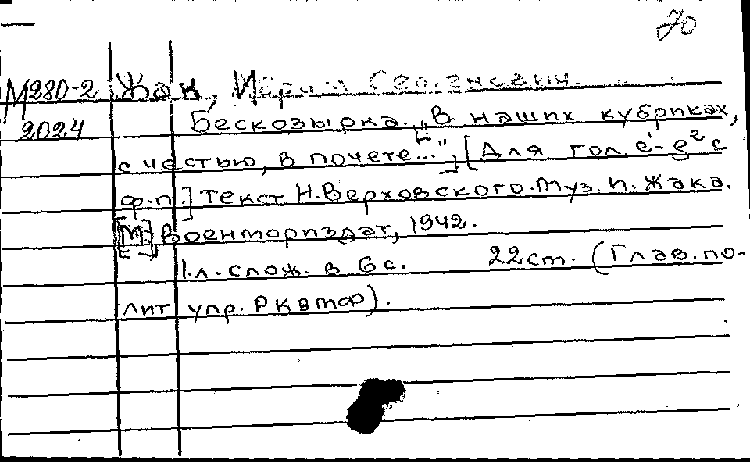 70
М280-2 Жак,
2024 Бескозырка. „В наших кубриках,
с честью, в почете..." [Для гол. e¹-g² с
ф.п.] Текст Н. Верховского. Муз. И. Жака.
[М.], Военмориздат, 1942.
1 л. слож. в 6 с. 22 ст. (Глав. по-
лит упр. РКВМФ).